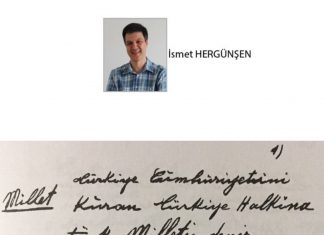 İsmet HERGÜNŞEN
1)
Millet Türkiye Cümhuriyetini
Kuran Türkiye Halkına
Milleti denir